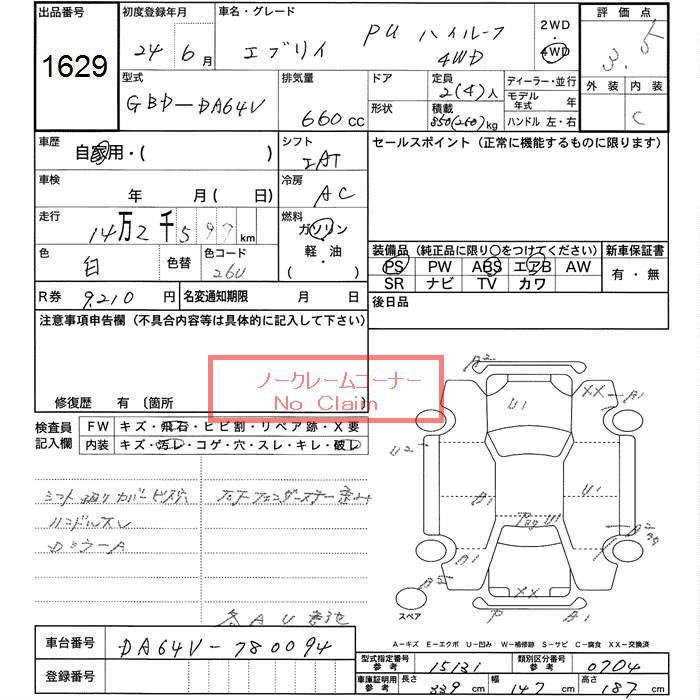 出品番号 初度登録年月 車名・グレード 2WD 評価点
1629 24年6月 エブリイ PU ハイルーフ 4WD 4WD 3.5
型式 排気量 ドア 定員 ディーラー・並行 外装 内装
GBD-DA64V 660cc 2(4)人 モデル年式 年 C
形状 積載 350(200)kg ハンドル 左・右
車歴 シフト セールスポイント(正常に機能するものに限ります)
自家用・( ) IAT
車検 冷房
年 月(日) AC
走行 燃料
14万2千597km ガソリン
軽・油
・( )
色 色替 色コード 装備品(純正品に限り○をつけてください) 新車保証書
白 26U PS PW ABS エアB AW 有・無
SR ナビ TV カワ
R券 9,210円 名変通知期限 月 日 後日品
注意事項申告欄(不具合内容等は具体的に記入して下さい)
ノークレームコーナー
No Claim
修復歴 有〔箇所 〕
検査員記入欄 FW キズ・飛石・ヒビ割・リペア跡・X要
内装 キズ・汚レ・コゲ・穴・スレ・キレ・破レ
シフト廻りカバービス穴
ハンドルスレ
DミラーA
A2
XX
A1
U1
U2
B1
U1
U1
XX
P
B1
スペア
A-キズ E-エクボ U-凹み W-補修跡 S-サビ C-腐食 XX-交換済
車台番号 DA64V-780094
登録番号
型式指定番号 参考 15131 類別区分番号 参考 0704
車庫証明用 参考 長さ 339cm 幅 147cm 高さ 187cm